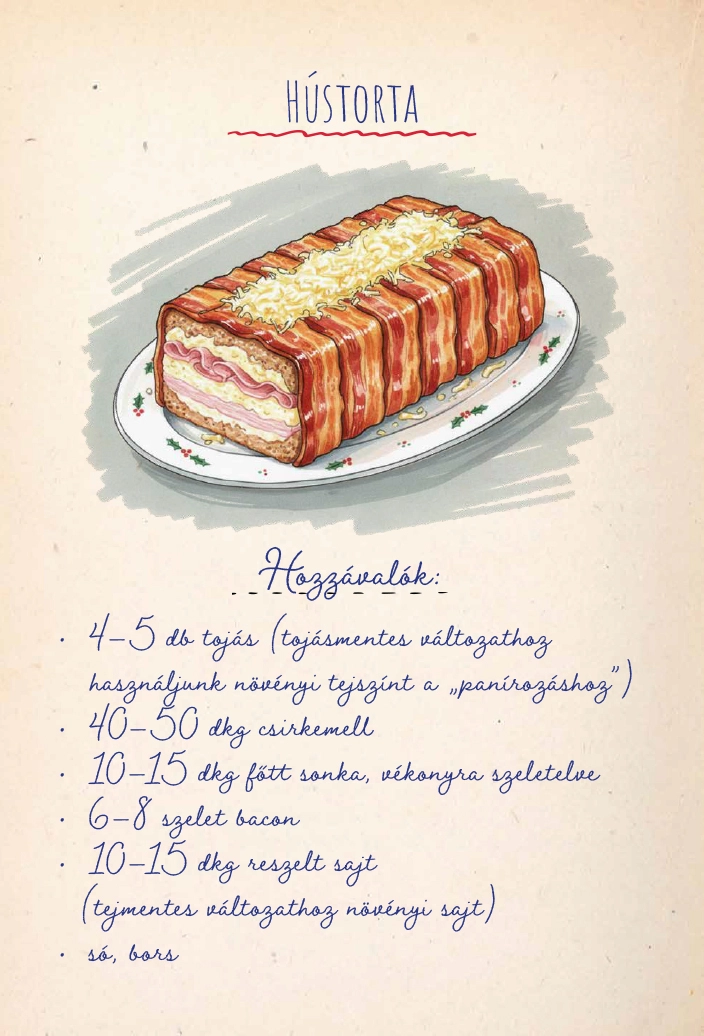 HÚSTORTA
Hozzávalók:
• 4–5 db tojás (tojásmentes változathoz
használjunk növényi tejszínt a „panírozáshoz”)
• 40–50 dkg csirkemell
• 10–15 dkg főtt sonka, vékonyra szeletelve
• 6–8 szelet bacon
• 10–15 dkg reszelt sajt
(tejmentes változathoz növényi sajt)
• só, bors